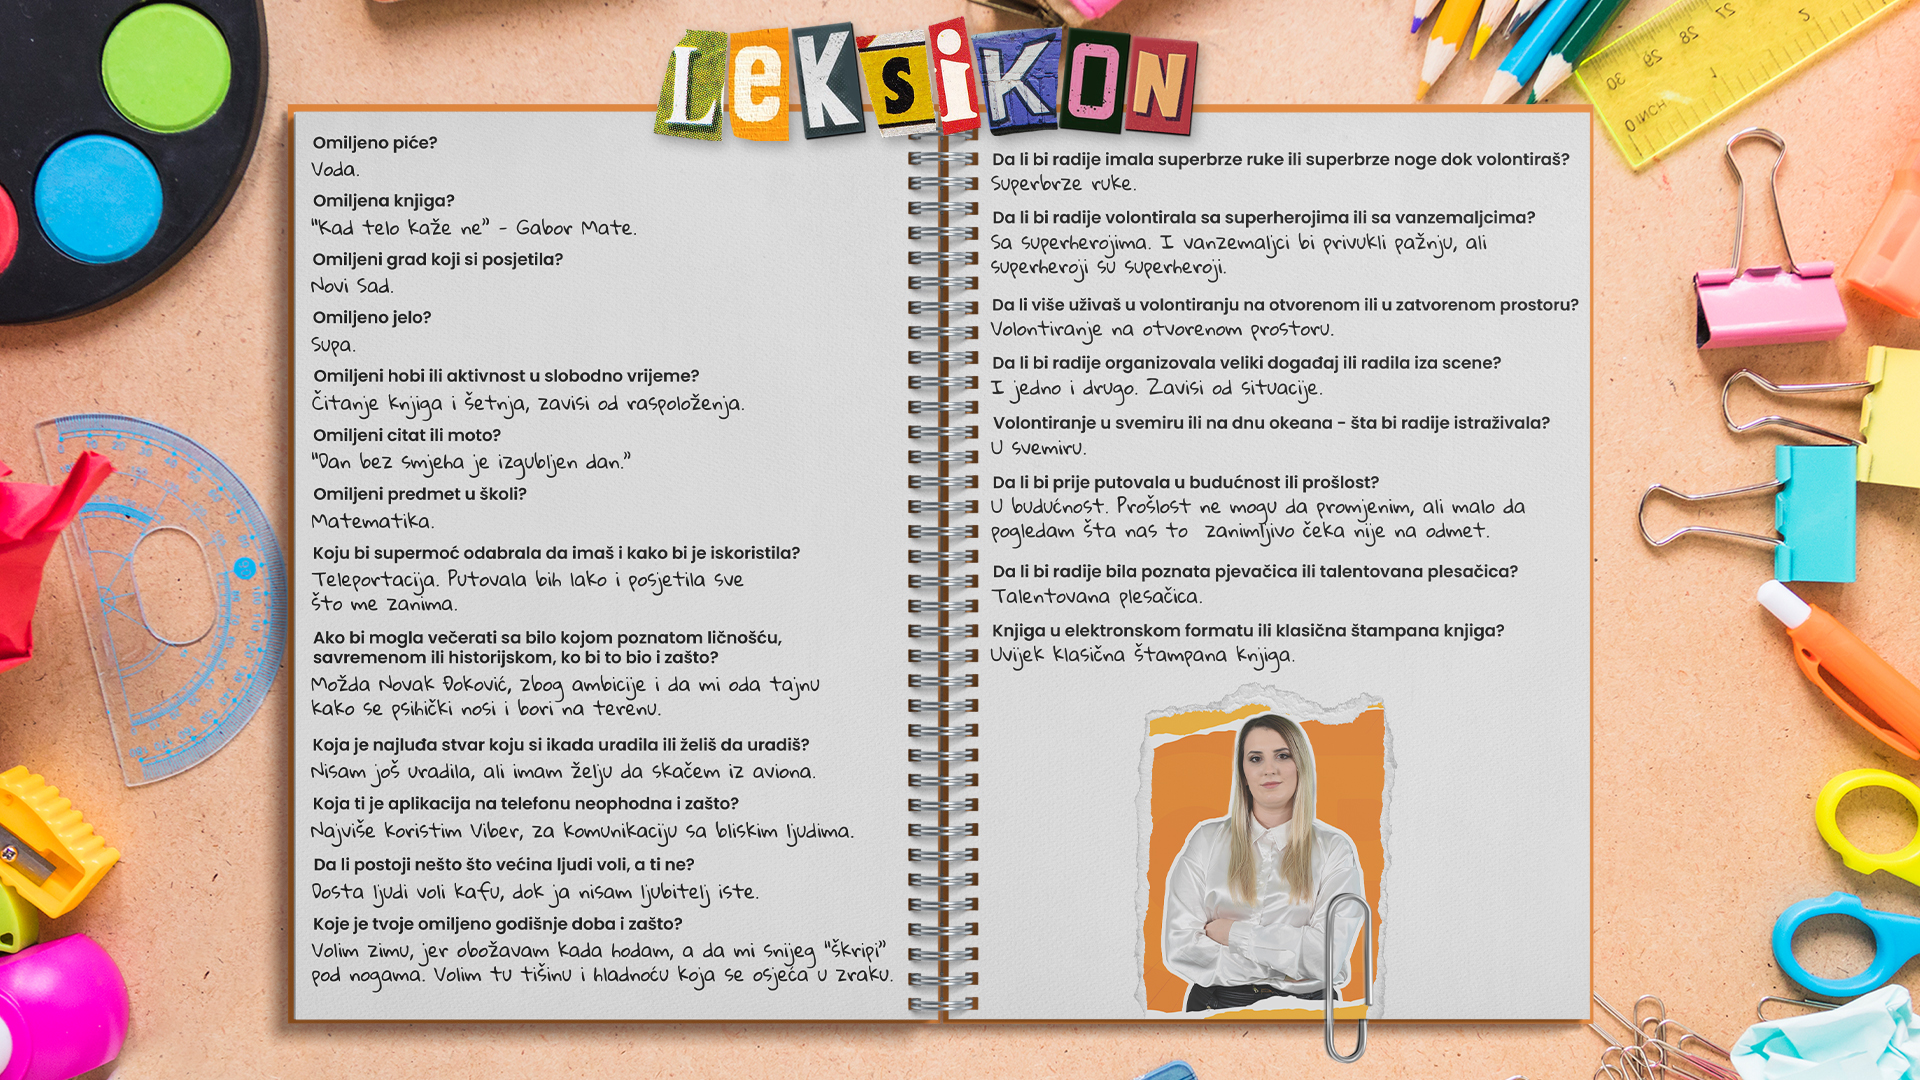 LeKsiKON
Omiljeno piće?
Voda.
Omiljena knjiga?
"Kad telo kaže ne" - Gabor Mate.
Omiljeni grad koji si posjetila?
Novi Sad.
Omiljeno jelo?
Supa.
Omiljeni hobi ili aktivnost u slobodno vrijeme?
Čitanje knjiga i šetnja, zavisi od raspoloženja.
Omiljeni citat ili moto?
"Dan bez smjeha je izgubljen dan."
Omiljeni predmet u školi?
Matematika.
Koju bi supermoć odabrala da imaš i kako bi je iskoristila?
Teleportacija. Putovala bih lako i posjetila sve
što me zanima.
Ako bi mogla večerati sa bilo kojom poznatom ličnošću,
savremenom ili historijskom, ko bi to bio i zašto?
Možda Novak Đoković, zbog ambicije i da mi oda tajnu
kako se psihički nosi i bori na terenu.
Koja je najluđa stvar koju si ikada uradila ili želiš da uradiš?
Nisam još uradila, ali imam želju da skačem iz aviona.
Koja ti je aplikacija na telefonu neophodna i zašto?
Najviše koristim Viber, za komunikaciju sa bliskim ljudima.
Da li postoji nešto što većina ljudi voli, a ti ne?
Dosta ljudi voli kafu, dok ja nisam ljubitelj iste.
Koje je tvoje omiljeno godišnje doba i zašto?
Volim zimu, jer obožavam kada hodam, a da mi snijeg "škripi"
pod nogama. Volim tu tišinu i hladnoću koja se osjeća u zraku.
Da li bi radije imala superbrze ruke ili superbrze noge dok volontiraš?
Superbrze ruke.
Da li bi radije volontirala sa superherojima ili sa vanzemaljcima?
Sa superherojima. I vanzemaljci bi privukli pažnju, ali
superheroji su superheroji.
Da li više uživaš u volontiranju na otvorenom ili u zatvorenom prostoru?
Volontiranje na otvorenom prostoru.
Da li bi radije organizovala veliki događaj ili radila iza scene?
I jedno i drugo. Zavisi od situacije.
Volontiranje u svemiru ili na dnu okeana - šta bi radije istraživala?
U svemiru.
Da li bi prije putovala u budućnost ili prošlost?
U budućnost. Prošlost ne mogu da promjenim, ali malo da
pogledam šta nas to zanimljivo čeka nije na odmet.
Da li bi radije bila poznata pjevačica ili talentovana plesačica?
Talentovana plesačica.
Knjiga u elektronskom formatu ili klasična štampana knjiga?
Uvijek klasična štampana knjiga.